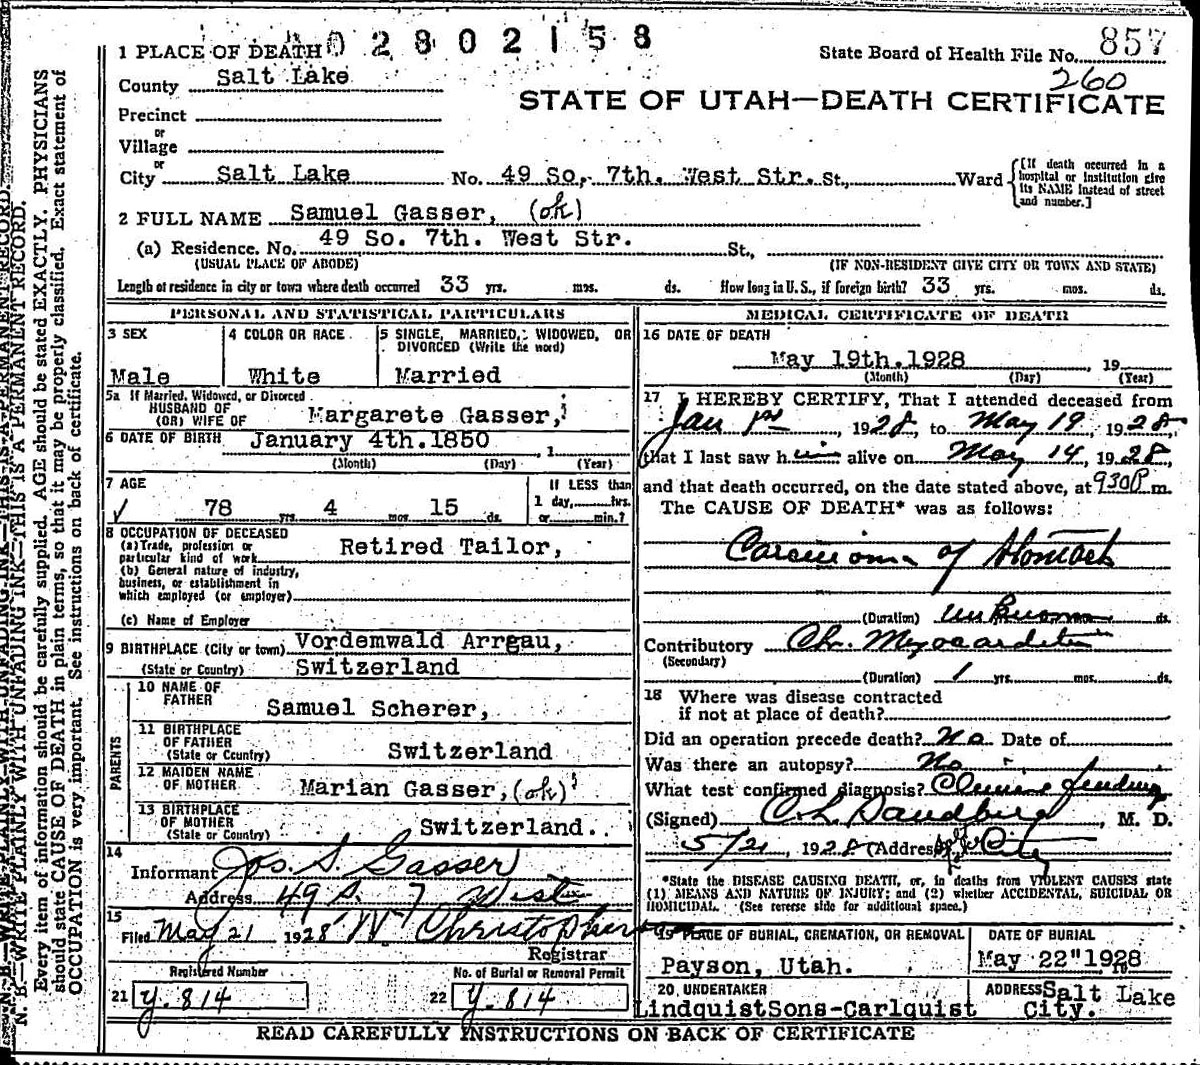 0 2 8 0 2 1 5 8
1 PLACE OF DEATH
State Board of Health File No. 857
260
County Salt Lake
STATE OF UTAH—DEATH CERTIFICATE
Precinct
or
Village
or
City Salt Lake No. 49 So, 7th. West Str. St., Ward
[If death occurred in a hospital or institution give its NAME instead of street and number.]
2 FULL NAME Samuel Gasser, (ok)
(a) Residence. No. 49 So. 7th. West Str. St.,
(USUAL PLACE OF ABODE) (IF NON-RESIDENT GIVE CITY OR TOWN AND STATE)
Length of residence in city or town where death occurred 33 yrs. mos. ds. How long in U. S., if foreign birth? 33 yrs. mos. ds.
PERSONAL AND STATISTICAL PARTICULARS
3 SEX
Male
4 COLOR OR RACE
White
5 SINGLE, MARRIED, WIDOWED, OR DIVORCED (Write the word)
Married
5a If Married, Widowed, or Divorced
HUSBAND OF
(OR) WIFE OF Margarete Gasser,
6 DATE OF BIRTH January 4th.1850 , 1
(Month) (Day) (Year)
7 AGE
78 yrs. 4 mos. 15 ds.
If LESS than
1 day, hrs.
or min.?
8 OCCUPATION OF DECEASED
(a) Trade, profession or
particular kind of work Retired Tailor,
(b) General nature of industry,
business, or establishment in
which employed (or employer)
(c) Name of Employer
9 BIRTHPLACE (City or town) Vordemwald Arrgau,
(State or Country) Switzerland
PARENTS
10 NAME OF
FATHER Samuel Scherer,
11 BIRTHPLACE
OF FATHER
(State or Country) Switzerland
12 MAIDEN NAME
OF MOTHER Marian Gasser, (ok)
13 BIRTHPLACE
OF MOTHER
(State or Country) Switzerland.
14
Informant Jos. S. Gasser
Address 49 S. 7 West
15
Filed May 21 1928 W Christopherson
Registrar
Registered Number
21 y. 814
No. of Burial or Removal Permit
22 y. 814
MEDICAL CERTIFICATE OF DEATH
16 DATE OF DEATH
May 19th.1928 19
(Month) (Day) (Year)
17 I HEREBY CERTIFY, That I attended deceased from
Jan 1st, 1928, to May 19, 1928
that I last saw him alive on May 14, 1928,
and that death occurred, on the date stated above, at 930P m.
The CAUSE OF DEATH* was as follows:
Carcinoma of Stomach
(Duration) unknown ds.
Contributory Ch. Myocarditis
(Secondary)
(Duration) 1 yrs. mos. ds.
18 Where was disease contracted
if not at place of death?
Did an operation precede death? No Date of
Was there an autopsy? No
What test confirmed diagnosis?
(Signed) C. L. Sandberg, M. D.
5/21, 1928 (Address) City
*State the DISEASE CAUSING DEATH, or, in deaths from VIOLENT CAUSES state
(1) MEANS AND NATURE OF INJURY; and (2) whether ACCIDENTAL, SUICIDAL OR
HOMICIDAL. (See reverse side for additional space.)
19 PLACE OF BURIAL, CREMATION, OR REMOVAL
Payson, Utah.
DATE OF BURIAL
May 22"1928
20 UNDERTAKER
LindquistSons-Carlquist
ADDRESS Salt Lake
City.
READ CAREFULLY INSTRUCTIONS ON BACK OF CERTIFICATE
N. B.—WRITE PLAINLY WITH UNFADING INK—THIS IS A PERMANENT RECORD.
Every item of information should be carefully supplied. AGE should be stated EXACTLY. PHYSICIANS
should state CAUSE OF DEATH in plain terms, so that it may be properly classified. Exact statement of
OCCUPATION is very important. See instructions on back of certificate.